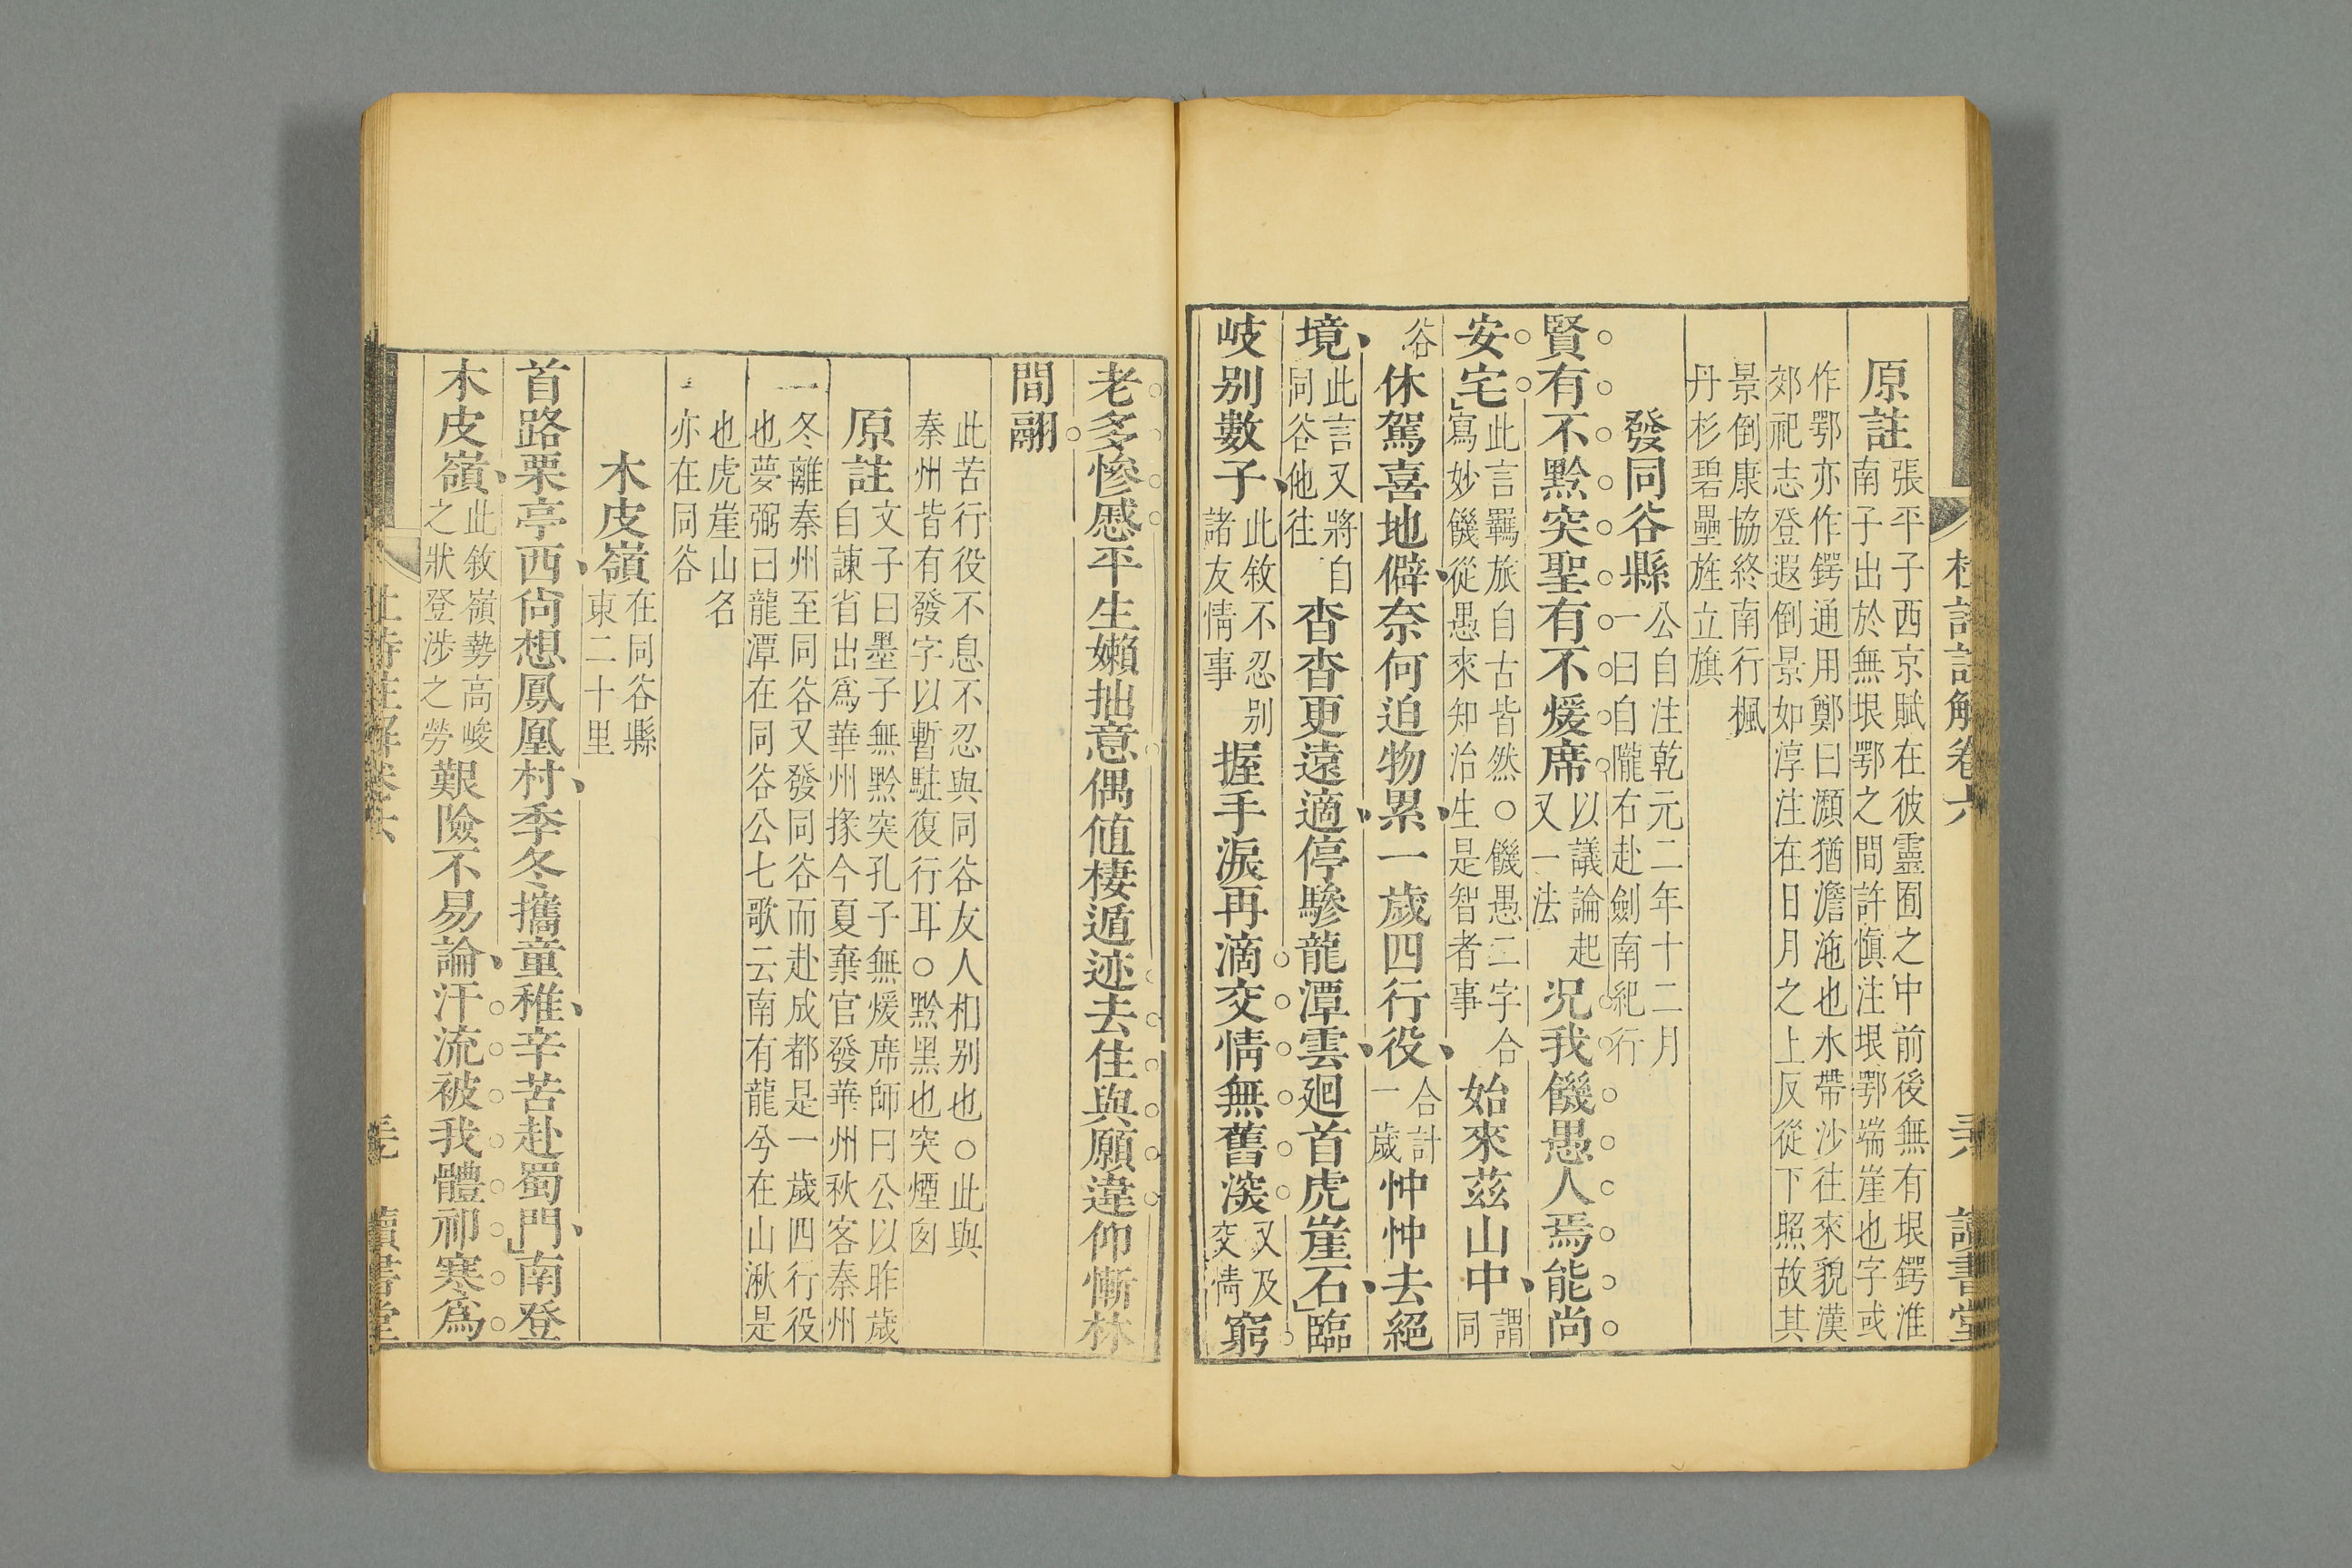 原註張平子西京賦在彼靈囿之中前後無有垠鍔淮
南子出於無垠鄂之間許慎注垠鄂端崖也字或
作鄂亦作鍔通用鄭曰澦猶澹沲也水帶沙往來貌漢
郊祀志登遐倒景如淳注在日月之上反從下照故其
景倒康協終南行楓
丹杉碧壘旌立旗
發同谷縣公自注乾元二年十二月
一曰自隴右赴劍南紀行
賢有不黔突聖有不煖席以議論起
又一法況我饑愚人焉能尚
安宅此言羈旅自古皆然○饑愚二字合
寫妙饑從愚來知治生是智者事始來茲山中謂同
谷休駕喜地僻奈何迫物累一歲四行役合計
一歲忡忡去絕
境此言又將自
同谷他往杳杳更遠適停驂龍潭雲廻首虎崖石臨
岐别數子此敘不忍别
諸友情事握手淚再滴交情無舊深又及
交情窮
杜詩註解卷六 讀書堂
老多慘慼平生嬾拙意偶值棲遁迹去住與願違仰慚林
間翮
此苦行役不息不忍與同谷友人相别也○此與
秦州皆有發字以暫駐復行耳○黔黑也突煙囪
原註文子曰墨子無黔突孔子無煖席師曰公以昨歲
自諫省出爲華州掾今夏棄官發華州秋客秦州
冬離秦州至同谷又發同谷而赴成都是一歲四行役
也夢弼曰龍潭在同谷公七歌云南有龍兮在山湫是
也虎崖山名
亦在同谷
木皮嶺在同谷縣
東二十里
首路栗亭西尙想鳳凰村季冬攜童稚辛苦赴蜀門南登
木皮嶺此敘嶺勢高峻
之狀登涉之勞艱險不易論汗流被我體祁寒爲
讀書堂